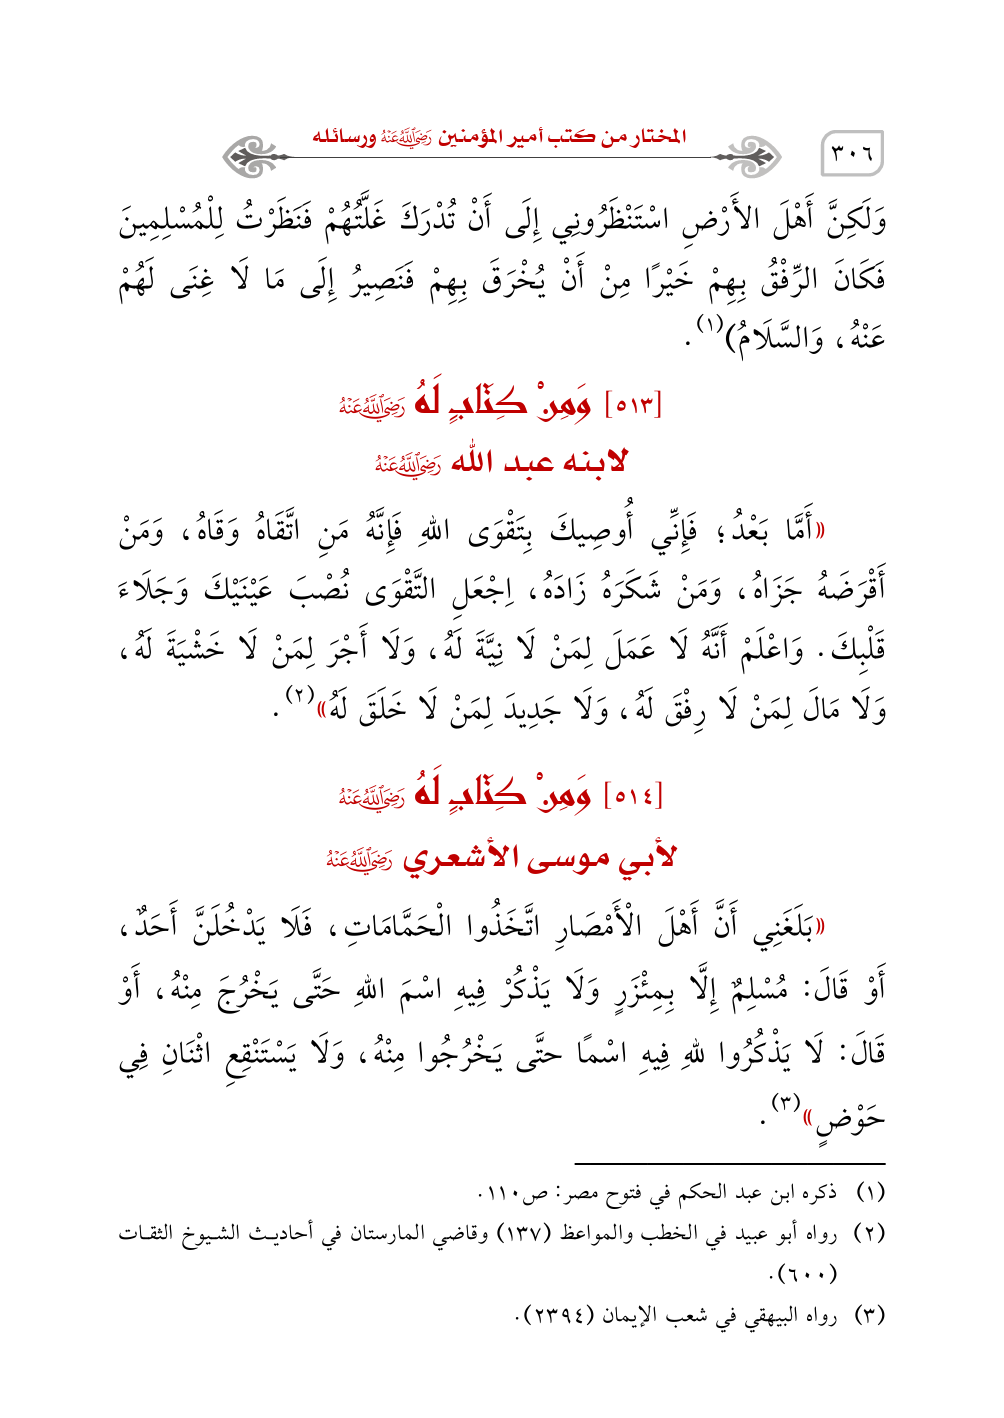 ٣٠٦
المختار من كتب أمير المؤمنين رَضِيَ اللَّهُ عَنْهُ ورسائله
وَلَكِنَّ أَهْلَ الأَرْضِ اسْتَنْظَرُونِي إِلَى أَنْ تُدْرَكَ غَلَّتُهُمْ فَنَظَرْتُ لِلْمُسْلِمِينَ
فَكَانَ الرِّفْقُ بِهِمْ خَيْرًا مِنْ أَنْ يُخْرَقَ بِهِمْ فَنَصِيرُ إِلَى مَا لَا غِنَى لَهُمْ
عَنْهُ، وَالسَّلَامُ)(١).
[٥١٣] وَمِنْ كِتَابٍ لَهُ رَضِيَ اللَّهُ عَنْهُ
لابنه عبد الله رَضِيَ اللَّهُ عَنْهُ
«أَمَّا بَعْدُ؛ فَإِنِّي أُوصِيكَ بِتَقْوَى اللهِ فَإِنَّهُ مَنِ اتَّقَاهُ وَقَاهُ، وَمَنْ
أَقْرَضَهُ جَزَاهُ، وَمَنْ شَكَرَهُ زَادَهُ، اِجْعَلِ التَّقْوَى نُصْبَ عَيْنَيْكَ وَجَلَاءَ
قَلْبِكَ. وَاعْلَمْ أَنَّهُ لَا عَمَلَ لِمَنْ لَا نِيَّةَ لَهُ، وَلَا أَجْرَ لِمَنْ لَا خَشْيَةَ لَهُ،
وَلَا مَالَ لِمَنْ لَا رِفْقَ لَهُ، وَلَا جَدِيدَ لِمَنْ لَا خَلَقَ لَهُ»(٢).
[٥١٤] وَمِنْ كِتَابٍ لَهُ رَضِيَ اللَّهُ عَنْهُ
لأبي موسى الأشعري رَضِيَ اللَّهُ عَنْهُ
«بَلَغَنِي أَنَّ أَهْلَ الْأَمْصَارِ اتَّخَذُوا الْحَمَّامَاتِ، فَلَا يَدْخُلَنَّ أَحَدٌ،
أَوْ قَالَ: مُسْلِمٌ إِلَّا بِمِئْزَرٍ وَلَا يَذْكُرْ فِيهِ اسْمَ اللهِ حَتَّى يَخْرُجَ مِنْهُ، أَوْ
قَالَ: لَا يَذْكُرُوا للهِ فِيهِ اسْمًا حتَّى يَخْرُجُوا مِنْهُ، وَلَا يَسْتَنْقِعِ اثْنَانِ فِي
حَوْضٍ»(٣).
(١) ذكره ابن عبد الحكم في فتوح مصر: ص١١٠.
(٢) رواه أبو عبيد في الخطب والمواعظ (١٣٧) وقاضي المارستان في أحاديث الشيوخ الثقات
(٦٠٠).
(٣) رواه البيهقي في شعب الإيمان (٢٣٩٤).